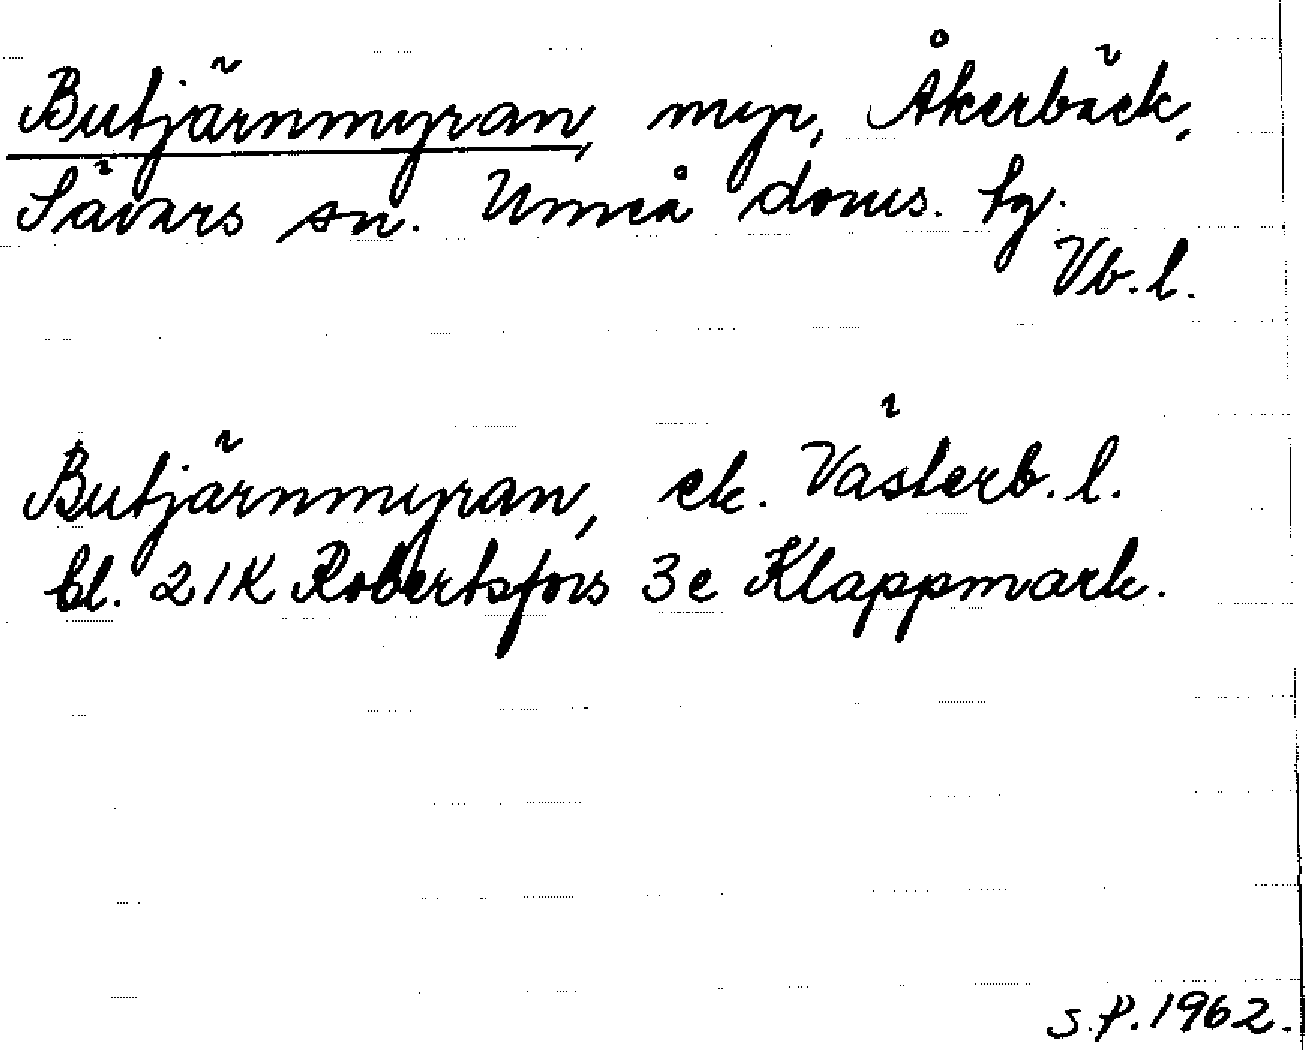 Butjärnmyran, myr, Åkerbäck,
Sävars sn. Umeå doms. tg.
Vb. l.
Butjärnmyran, ek. Västerb. l.
bl. 21K Robertsfors 3e Klappmark.
S.P. 1962.